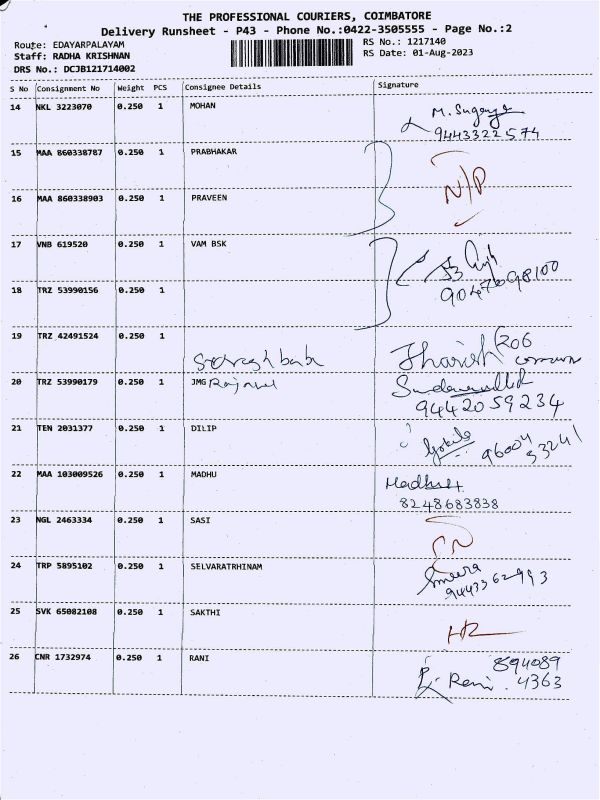 THE PROFESSIONAL COURIERS, COIMBATORE
Delivery Runsheet - P43 - Phone No.:0422-3505555 - Page No.:2
Route: EDAYARPALAYAM RS No.: 1217140
Staff: RADHA KRISHNAN RS Date: 01-Aug-2023
DRS No.: DCJB121714002
S No Consignment No Weight PCS Consignee Details Signature
14 NKL 3223070 0.250 1 MOHAN
9443322574
15 MAA 860338787 0.250 1 PRABHAKAR
N/P
16 MAA 860338903 0.250 1 PRAVEEN
17 VNB 619520 0.250 1 VAM BSK
9047098100
18 TRZ 53990156 0.250 1
19 TRZ 42491524 0.250 1
Harish 206
20 TRZ 53990179 0.250 1 JMG
9442059234
21 TEN 2031377 0.250 1 DILIP
96004 53241
22 MAA 103009526 0.250 1 MADHU
8248683838
23 NGL 2463334 0.250 1 SASI
24 TRP 5895102 0.250 1 SELVARATRHINAM
9443362993
25 SVK 65082108 0.250 1 SAKTHI
26 CNR 1732974 0.250 1 RANI
894089
Rani. 4363